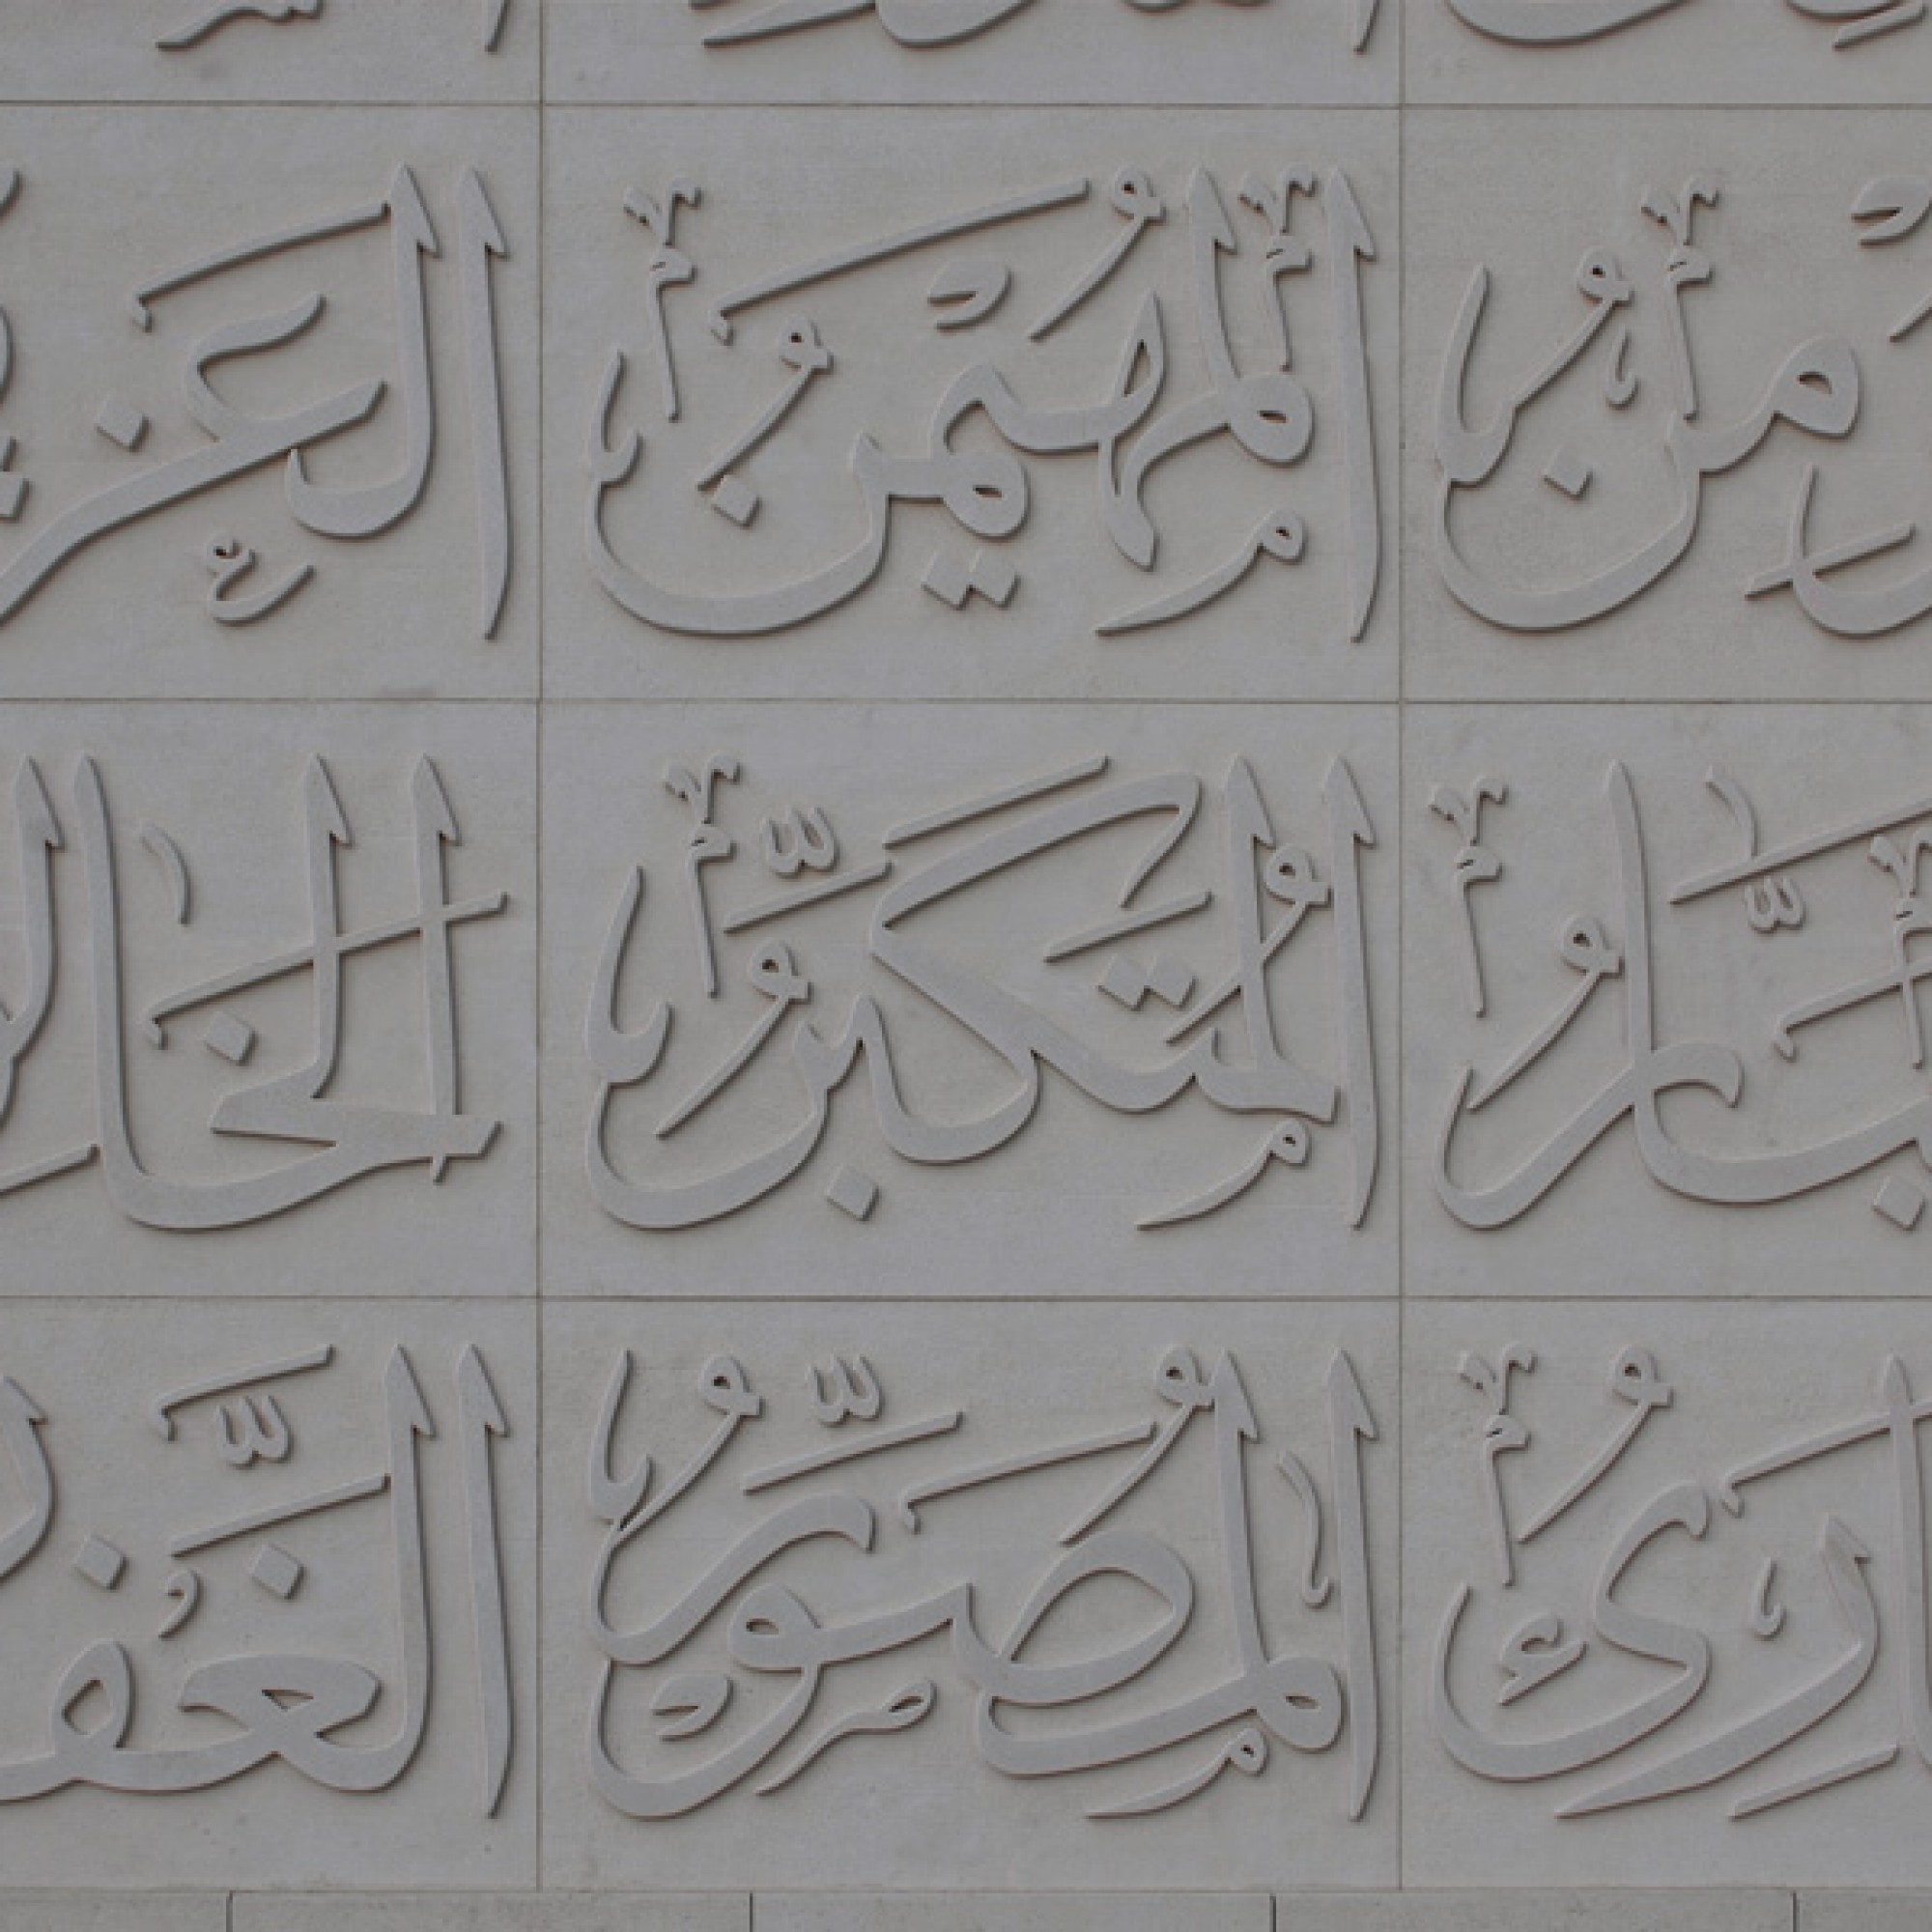 ـؤْمِنُ الْمُهَيْمِنُ الْعَزِيـ
ـبَّارُ الْمُتَكَبِّرُ الْخَالِـ
ـارِئُ الْمُصَوِّرُ الْغَفَّـ